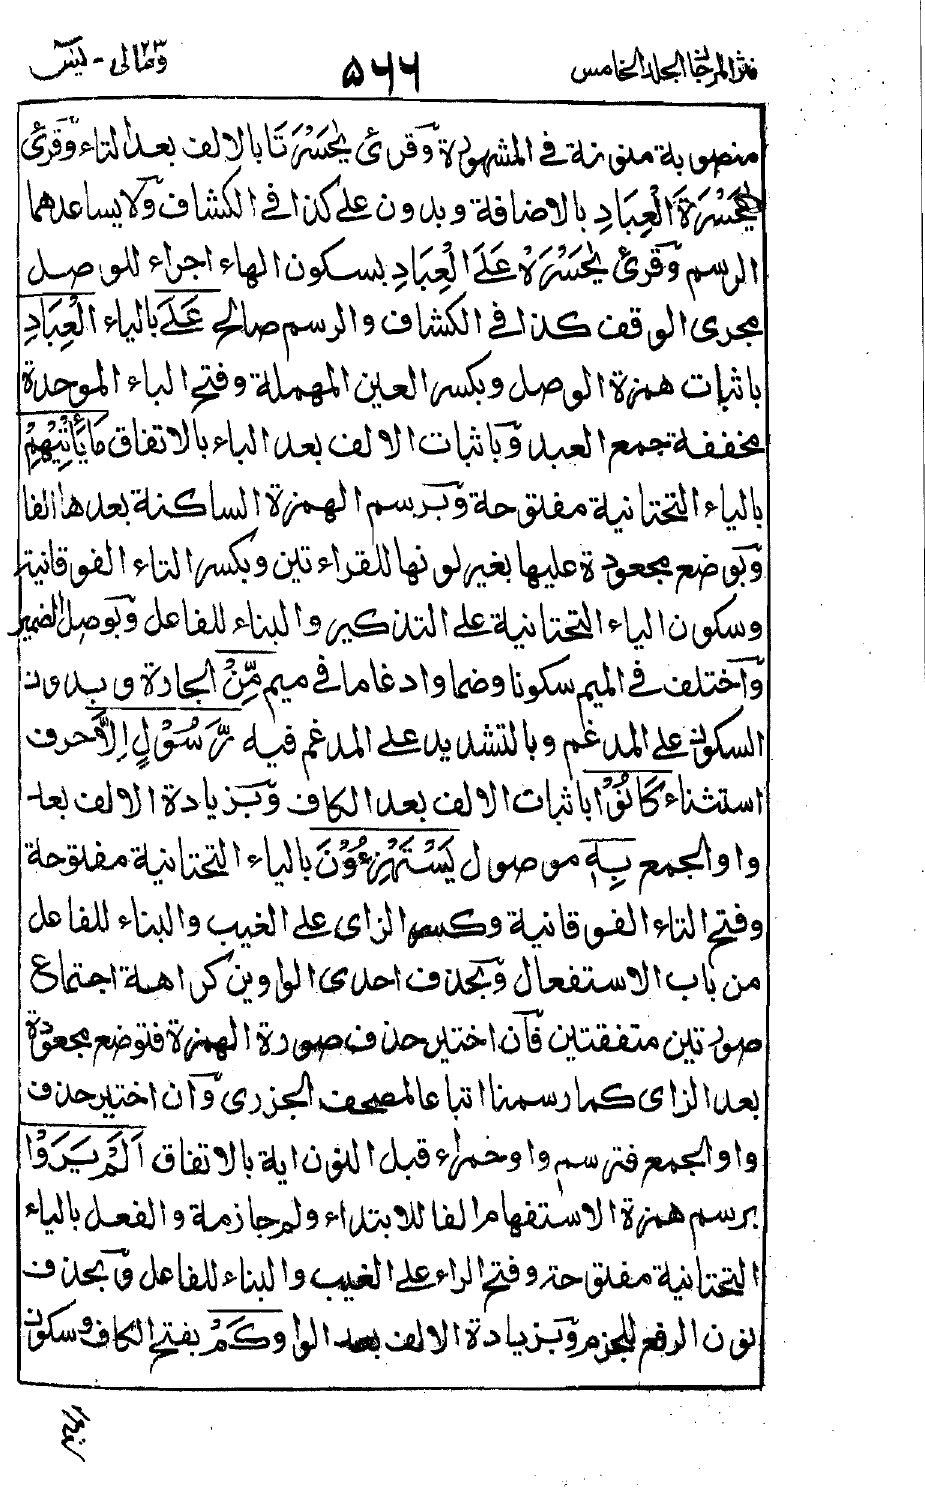 نثر المرجان المجلد الخامس ٥٦٦ ومالی ٢٣ - یٰسٓ
منصوبة منونة في المشهورة وقرئ يٰحسرتا بالالف بعد التاء وقرئ
يٰحَسْرَةَ الْعِبَادِ بالاضافة وبدون على كذا في الكشاف ولا يساعدهما
الرسم وقرئ يٰحَسْرَهْ عَلَى الْعِبَادِ بسكون الهاء اجراء للوصل
مجرى الوقف كذا في الكشاف والرسم صالح عَلَى بالياء الْعِبَادِ
باثبات همزة الوصل وبكسر العين المهملة وفتح الباء الموحدة
مخففة جمع العبد وباثبات الالف بعد الباء بالاتفاق مَا يَأْتِيْهِمْ
بالياء التحتانية مفتوحة وبرسم الهمزة الساكنة بعدها الفا
وبوضع مجعودة عليها بغير لونها للقراءتين وبكسر التاء الفوقانية
وسكون الياء التحتانية على التذكير والبناء للفاعل وبوصل الضمير
واختلف في الميم سكونا وضما وادغاما في ميم مِّنْ الجارة وبدون
السكون على المدغم وبالتشديد على المدغم فيه رَّسُوْلٍ اِلَّا حرف
استثناء كَانُوْا باثبات الالف بعد الكاف وبزيادة الالف بعد
واو الجمع بِهٖ موصول يَسْتَهْزِءُوْنَ بالياء التحتانية مفتوحة
وفتح التاء الفوقانية وكسر الزاى على الغيب والبناء للفاعل
من باب الاستفعال وبحذف احدى الواوين كراهة اجتماع
صورتين متفقتين فان اختير حذف صورة الهمزة فتوضع مجعودة
بعد الزاى كما رسمنا اتباعا لمصحف الجزرى وان اختير حذف
واو الجمع فترسم واو حمراء قبل النون اية بالاتفاق اَلَمْ يَرَوْا
برسم همزة الاستفهام الفا للابتداء ولم جازمة والفعل بالياء
التحتانية مفتوحة وفتح الراء على الغيب والبناء للفاعل وبحذف
نون الرفع للجزم وبزيادة الالف بعد الواو كَمْ بفتح الكاف وسكون